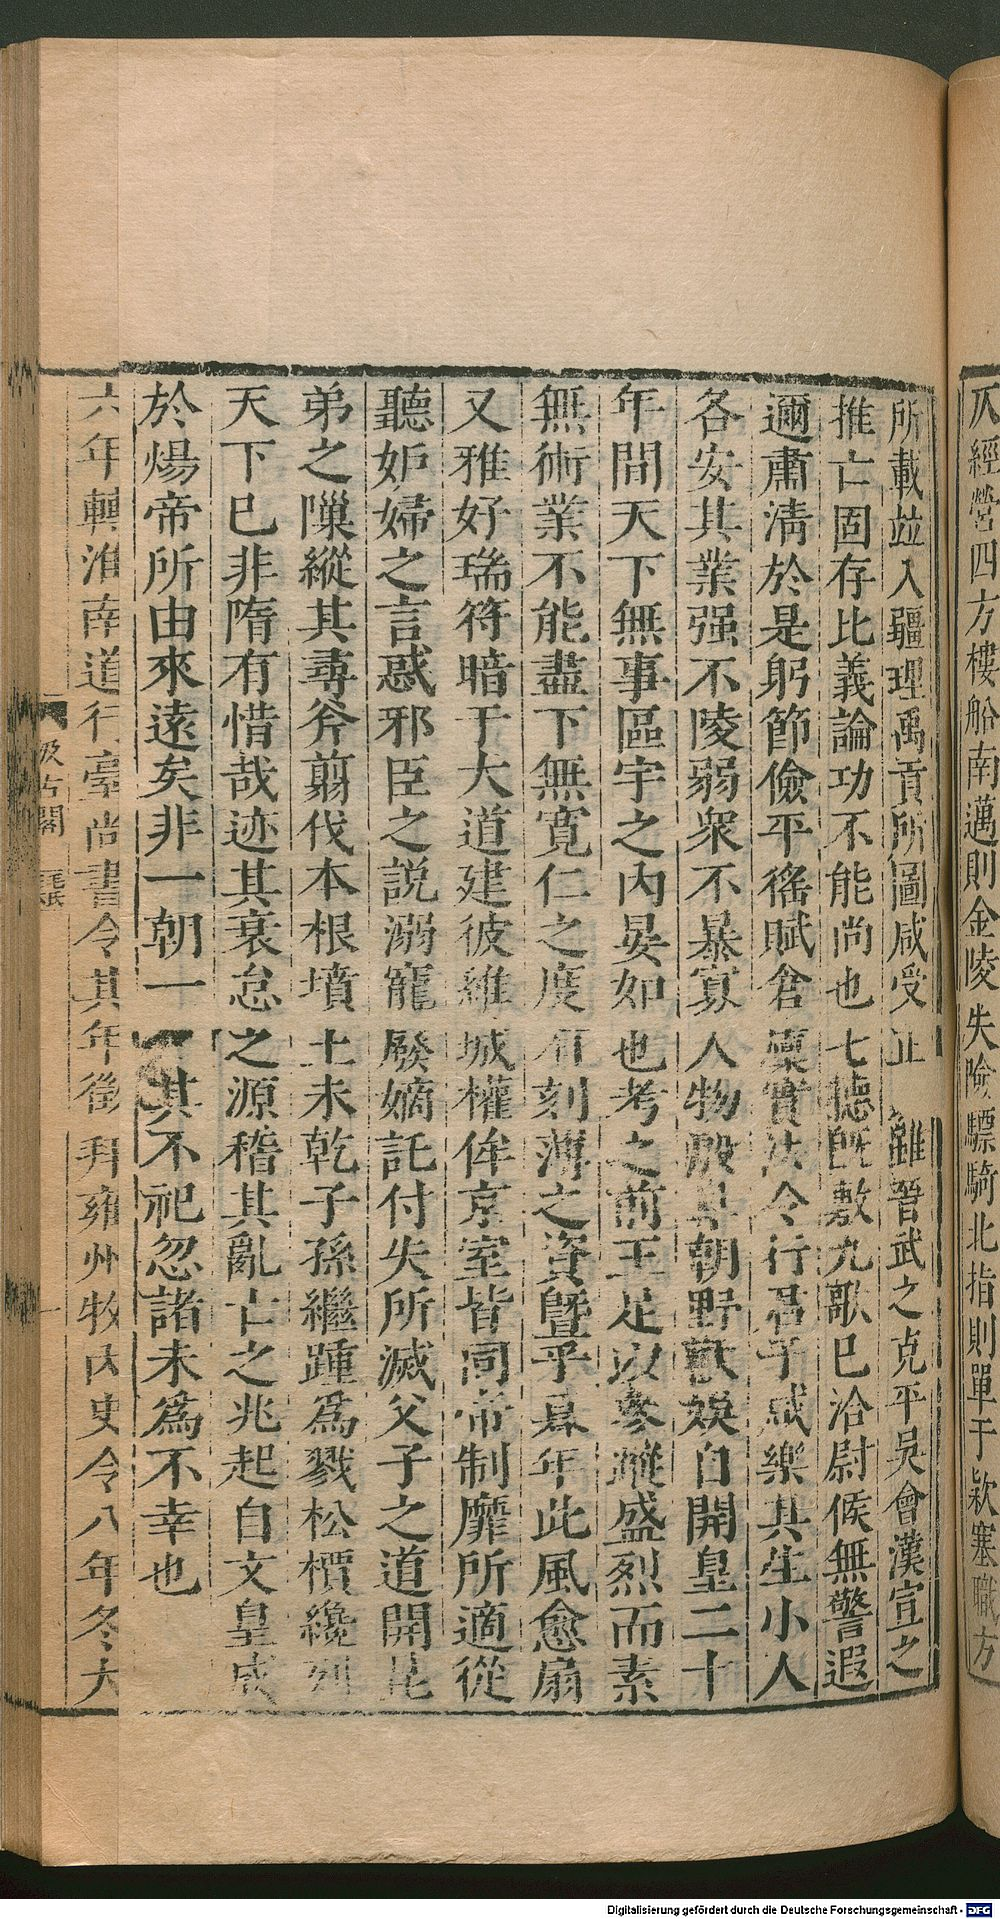 仄經營四方樓船南邁則金陵失險驃騎北指則單于欵塞職方
所載竝入疆理禹貢所圖咸受正 雖晉武之克平吳會漢宣之
推亡固存比義論功不能尚也七德旣敷九歌已洽尉候無警遐
邇肅淸於是躬節儉平徭賦倉凛實法令行君子咸樂其生小人
各安其業强不陵弱衆不暴寡人物殷阜朝野歡娛自開皇二十
年間天下無事區宇之內晏如也考之前王足以參蹤盛烈而素
無術業不能盡下無寬仁之度有刻薄之資曁乎暮年此風愈扇
又雅好瑞符暗于大道建彼維城權侔京室皆同帝制靡所適從
聽妒婦之言惑邪臣之說溺寵廢嫡託付失所滅父子之道開昆
弟之隟縱其尋斧翦伐本根墳土未乾子孫繼踵爲戮松檟纔列
天下已非隋有惜哉迹其衰怠之源稽其亂亡之兆起自文皇成
於煬帝所由來遠矣非一朝一 其不祀忽諸未爲不幸也
六年轉淮南道行臺尚書令其年徵拜雍州牧內史令八年冬大
汲古閣 毛氏
Digitalisierung gefördert durch die Deutsche Forschungsgemeinschaft - DFG